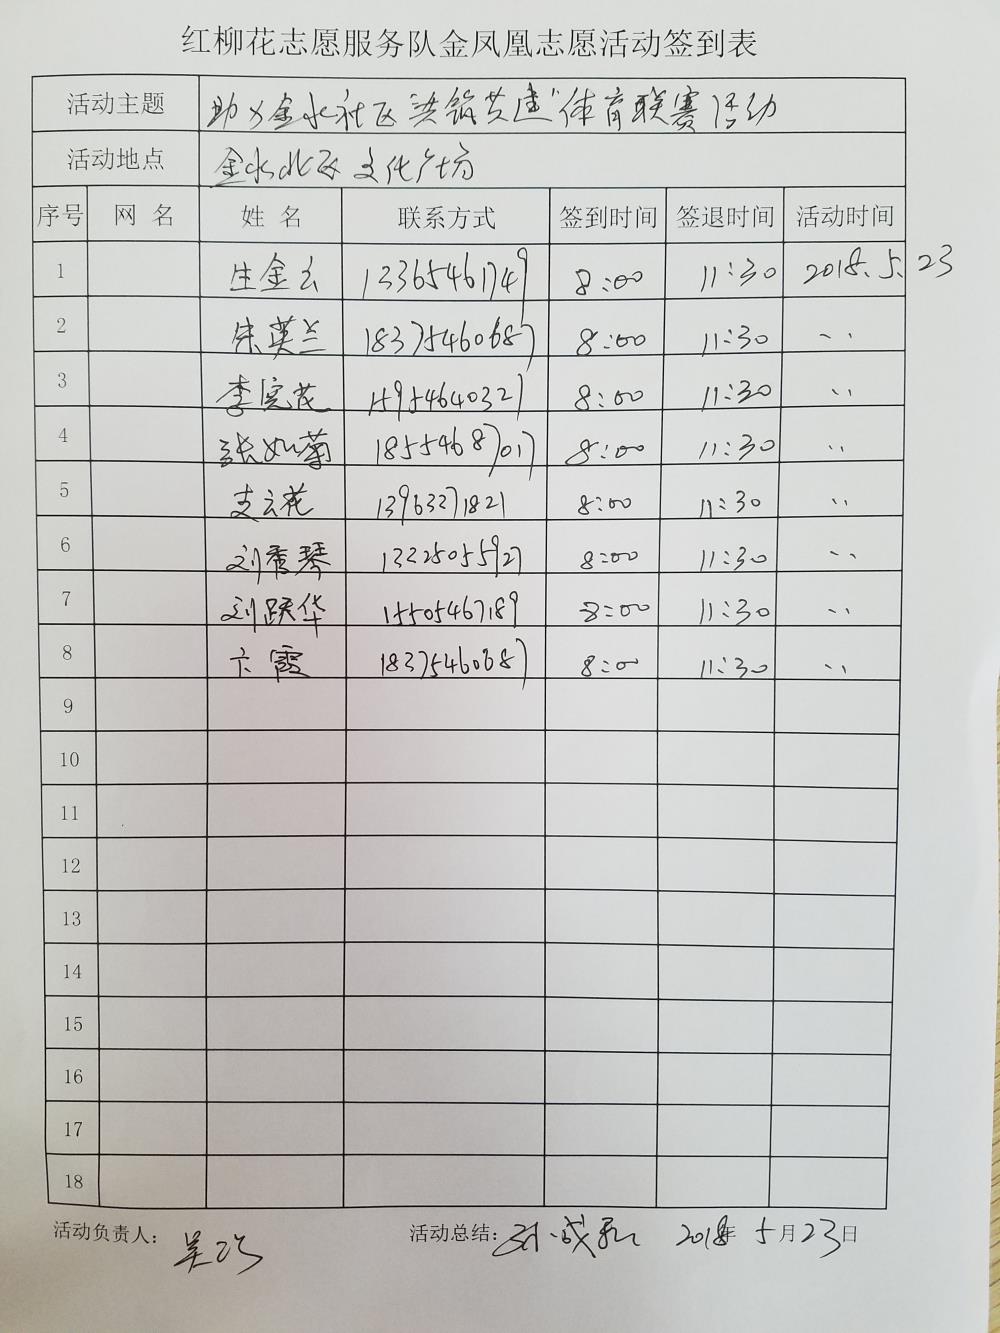 红柳花志愿服务队金凤凰志愿活动签到表
活动主题 助力金水社区"共筑共建"体育联赛活动
活动地点 金水北区文化广场
序号 网名 姓名 联系方式 签到时间 签退时间 活动时间
1 生金云 13365461749 8:00 11:30 2018.5.23
2 朱英兰 18375460687 8:00 11:30 、、
3 李宪花 15954640327 8:00 11:30 、、
4 张如菊 18554687017 8:00 11:30 、、
5 支云花 13963271821 8:00 11:30 、、
6 刘秀琴 13325055927 8:00 11:30 、、
7 刘跃华 15505467189 8:00 11:30 、、
8 卞霞 18375460687 8:00 11:30 、、
9
10
11
12
13
14
15
16
17
18
活动负责人: 活动总结: 2018年5月23日